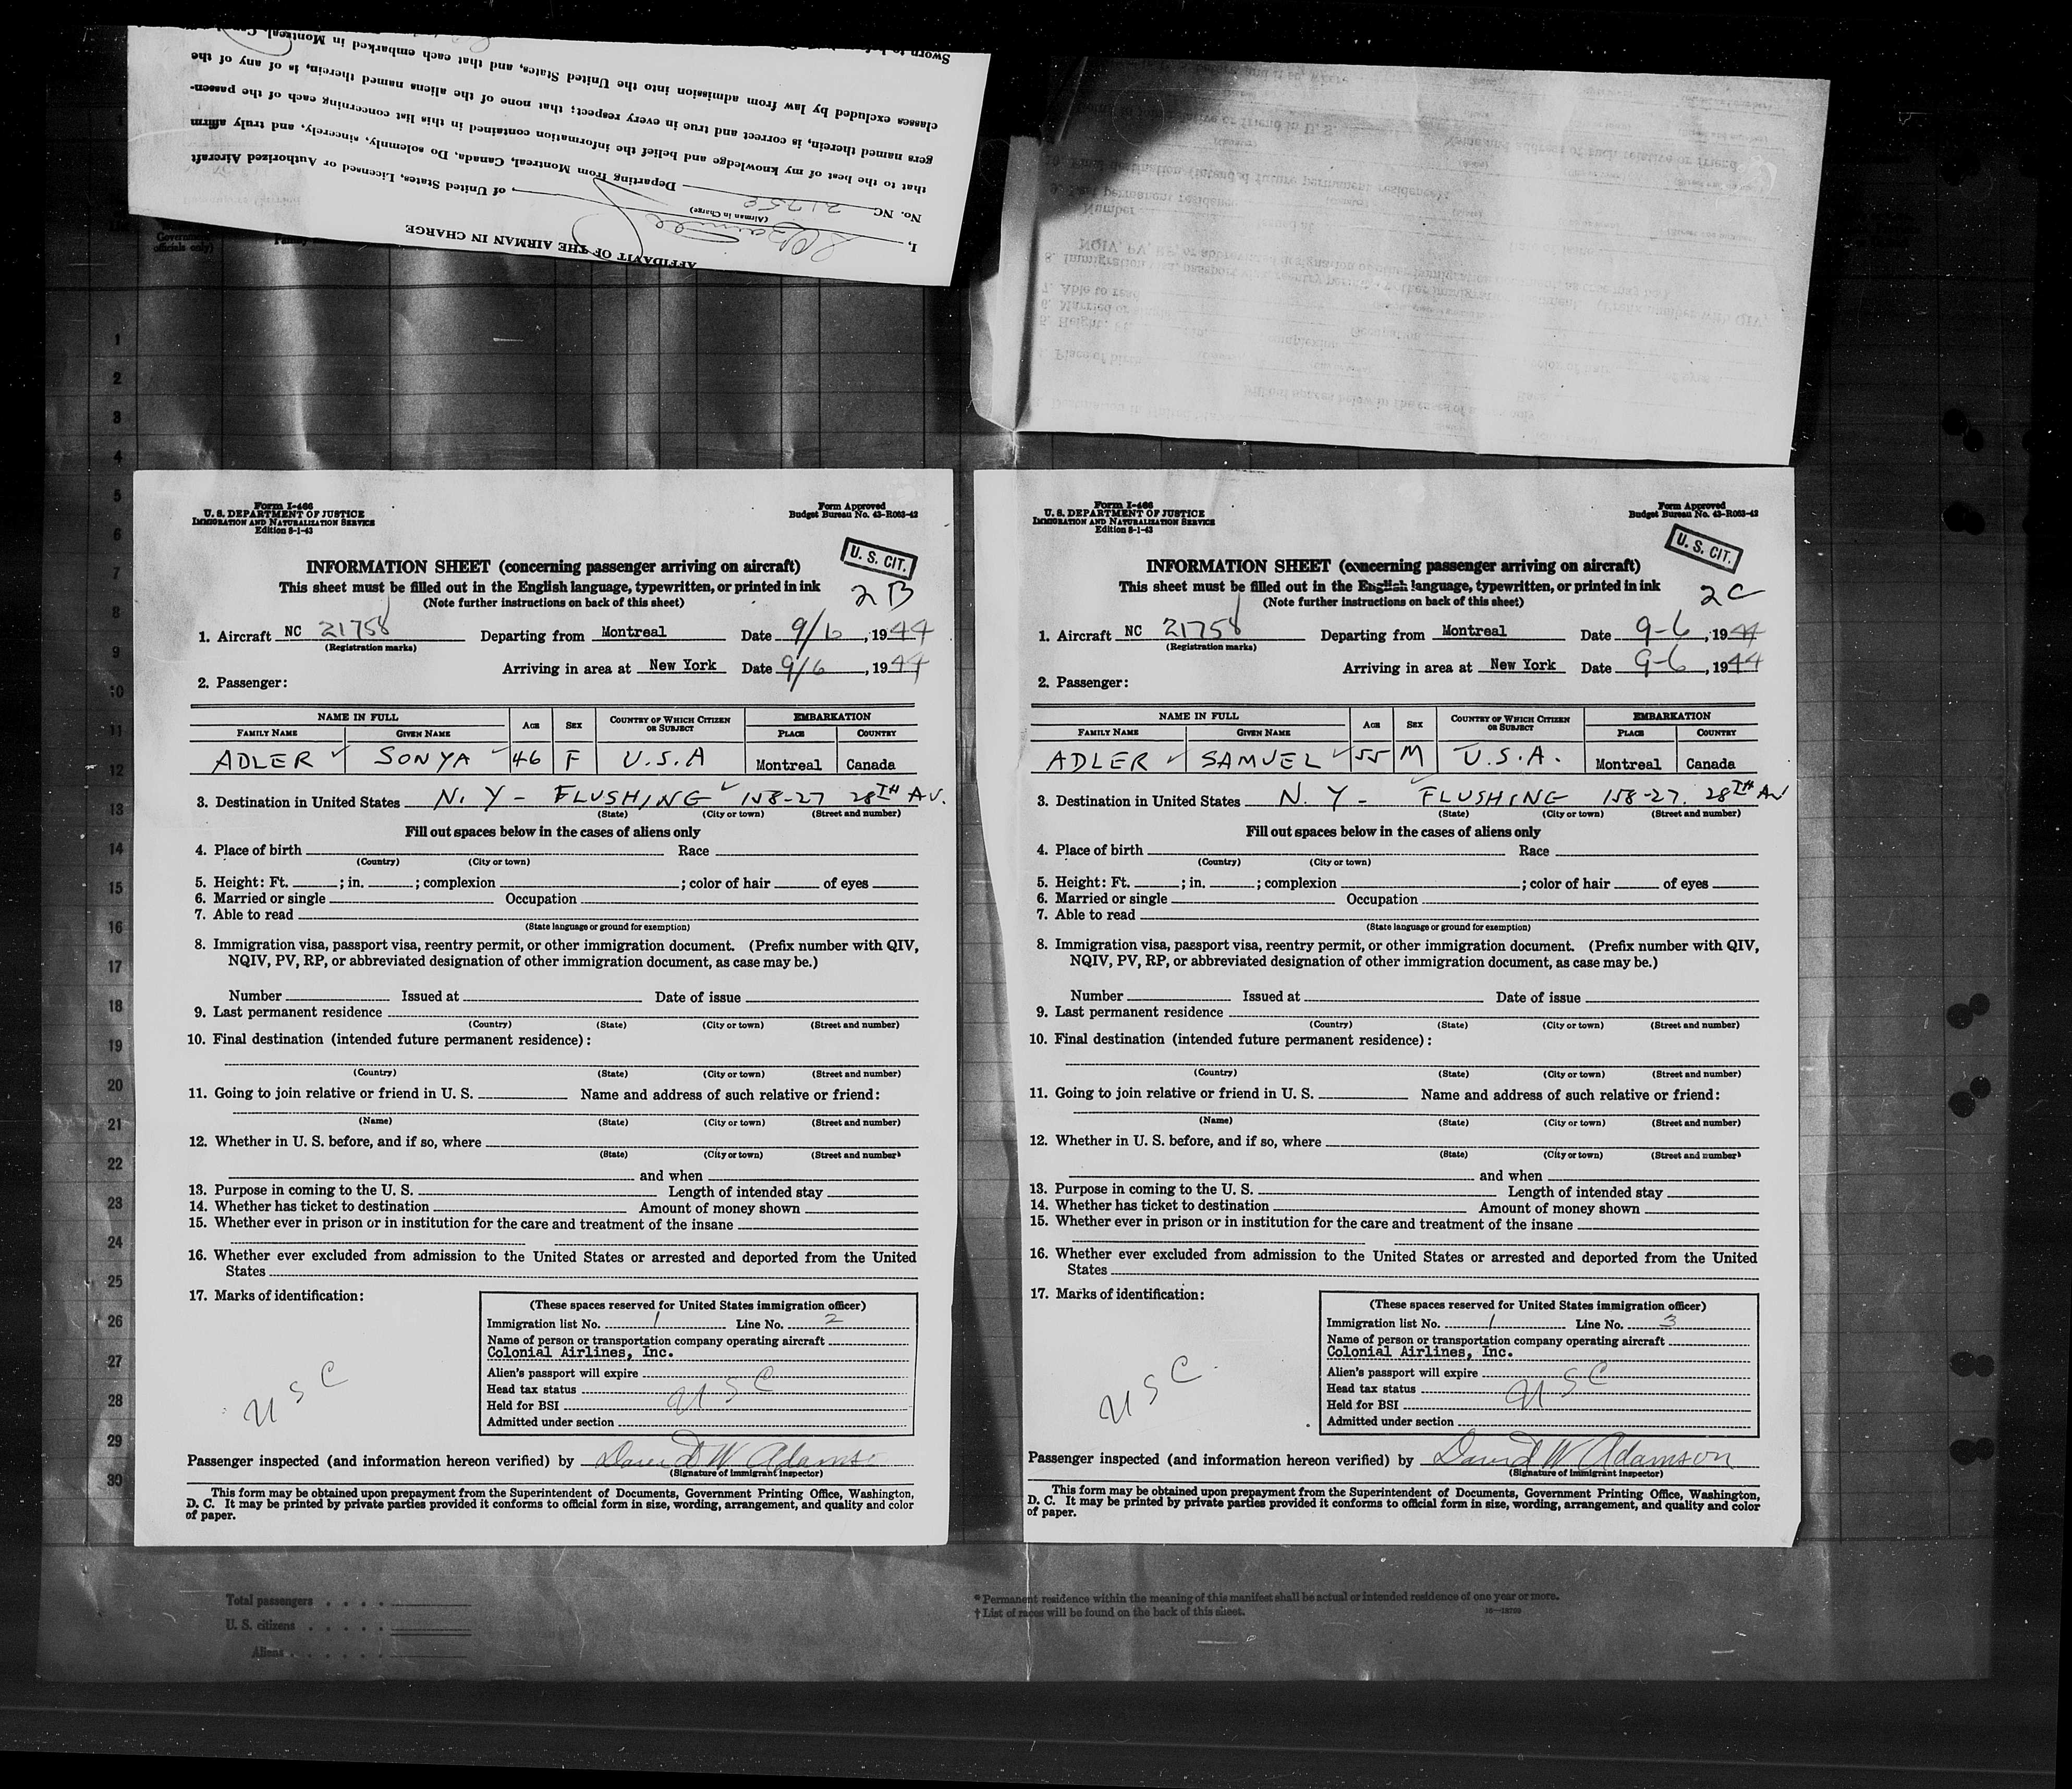 AFFIDAVIT OF THE AIRMAN IN CHARGE
I,
of United States, Licensed or Authorized Aircraft
(Airman in Charge)
No. NC 21758 Departing from Montreal, Canada, Do solemnly, sincerely, and truly affirm
that to the best of my knowledge and belief the information contained in this list concerning each of the passen-
gers named therein, is correct and true in every respect; that none of the aliens named therein, is of any of the
classes excluded by law from admission into the United States, and that each embarked in Montreal,
1
2
3
4
5
6
7
8
9
10
11
12
13
14
15
16
17
18
19
20
21
22
23
24
25
26
27
28
29
30
Form I-466
U. S. DEPARTMENT OF JUSTICE
IMMIGRATION AND NATURALIZATION SERVICE
Edition 8-1-43
Form Approved
Budget Bureau No. 43-R063-42
U. S. CIT.
INFORMATION SHEET (concerning passenger arriving on aircraft)
This sheet must be filled out in the English language, typewritten, or printed in ink
(Note further instructions on back of this sheet)
2B
1. Aircraft NC 21758 Departing from Montreal Date 9/6, 1944
(Registration marks)
Arriving in area at New York Date 9/6, 1944
2. Passenger:
NAME IN FULL AGE SEX COUNTRY OF WHICH CITIZEN OR SUBJECT EMBARKATION
FAMILY NAME GIVEN NAME PLACE COUNTRY
ADLER SONYA 46 F U.S.A Montreal Canada
3. Destination in United States N.Y - FLUSHING 158-27 28TH AV.
(State) (City or town) (Street and number)
Fill out spaces below in the cases of aliens only
4. Place of birth Race
(Country) (City or town)
5. Height: Ft. ; in. ; complexion ; color of hair of eyes
6. Married or single Occupation
7. Able to read
(State language or ground for exemption)
8. Immigration visa, passport visa, reentry permit, or other immigration document. (Prefix number with QIV,
NQIV, PV, RP, or abbreviated designation of other immigration document, as case may be.)
Number Issued at Date of issue
9. Last permanent residence
(Country) (State) (City or town) (Street and number)
10. Final destination (intended future permanent residence):
(Country) (State) (City or town) (Street and number)
11. Going to join relative or friend in U. S. Name and address of such relative or friend:
(Name) (State) (City or town) (Street and number)
12. Whether in U. S. before, and if so, where
(State) (City or town) (Street and number)
and when
13. Purpose in coming to the U. S. Length of intended stay
14. Whether has ticket to destination Amount of money shown
15. Whether ever in prison or in institution for the care and treatment of the insane
16. Whether ever excluded from admission to the United States or arrested and deported from the United
States
17. Marks of identification:
USC
(These spaces reserved for United States immigration officer)
Immigration list No. 1 Line No. 2
Name of person or transportation company operating aircraft
Colonial Airlines, Inc.
Alien's passport will expire
Head tax status USC
Held for BSI
Admitted under section
Passenger inspected (and information hereon verified) by David W Adamson
(Signature of immigrant inspector)
This form may be obtained upon prepayment from the Superintendent of Documents, Government Printing Office, Washington,
D. C. It may be printed by private parties provided it conforms to official form in size, wording, arrangement, and quality and color
of paper.
Form I-466
U. S. DEPARTMENT OF JUSTICE
IMMIGRATION AND NATURALIZATION SERVICE
Edition 8-1-43
Form Approved
Budget Bureau No. 43-R063-42
U. S. CIT.
INFORMATION SHEET (concerning passenger arriving on aircraft)
This sheet must be filled out in the English language, typewritten, or printed in ink
(Note further instructions on back of this sheet)
2C
1. Aircraft NC 21758 Departing from Montreal Date 9-6, 1944
(Registration marks)
Arriving in area at New York Date 9-6, 1944
2. Passenger:
NAME IN FULL AGE SEX COUNTRY OF WHICH CITIZEN OR SUBJECT EMBARKATION
FAMILY NAME GIVEN NAME PLACE COUNTRY
ADLER SAMUEL 55 M U.S.A. Montreal Canada
3. Destination in United States N.Y - FLUSHING 158-27. 28TH AV
(State) (City or town) (Street and number)
Fill out spaces below in the cases of aliens only
4. Place of birth Race
(Country) (City or town)
5. Height: Ft. ; in. ; complexion ; color of hair of eyes
6. Married or single Occupation
7. Able to read
(State language or ground for exemption)
8. Immigration visa, passport visa, reentry permit, or other immigration document. (Prefix number with QIV,
NQIV, PV, RP, or abbreviated designation of other immigration document, as case may be.)
Number Issued at Date of issue
9. Last permanent residence
(Country) (State) (City or town) (Street and number)
10. Final destination (intended future permanent residence):
(Country) (State) (City or town) (Street and number)
11. Going to join relative or friend in U. S. Name and address of such relative or friend:
(Name) (State) (City or town) (Street and number)
12. Whether in U. S. before, and if so, where
(State) (City or town) (Street and number)
and when
13. Purpose in coming to the U. S. Length of intended stay
14. Whether has ticket to destination Amount of money shown
15. Whether ever in prison or in institution for the care and treatment of the insane
16. Whether ever excluded from admission to the United States or arrested and deported from the United
States
17. Marks of identification:
USC
(These spaces reserved for United States immigration officer)
Immigration list No. 1 Line No. 3
Name of person or transportation company operating aircraft
Colonial Airlines, Inc.
Alien's passport will expire
Head tax status USC
Held for BSI
Admitted under section
Passenger inspected (and information hereon verified) by David W Adamson
(Signature of immigrant inspector)
This form may be obtained upon prepayment from the Superintendent of Documents, Government Printing Office, Washington,
D. C. It may be printed by private parties provided it conforms to official form in size, wording, arrangement, and quality and color
of paper.
Total passengers
U. S. citizens
Aliens
* Permanent residence within the meaning of this manifest shall be actual or intended residence of one year or more.
† List of races will be found on the back of this sheet.